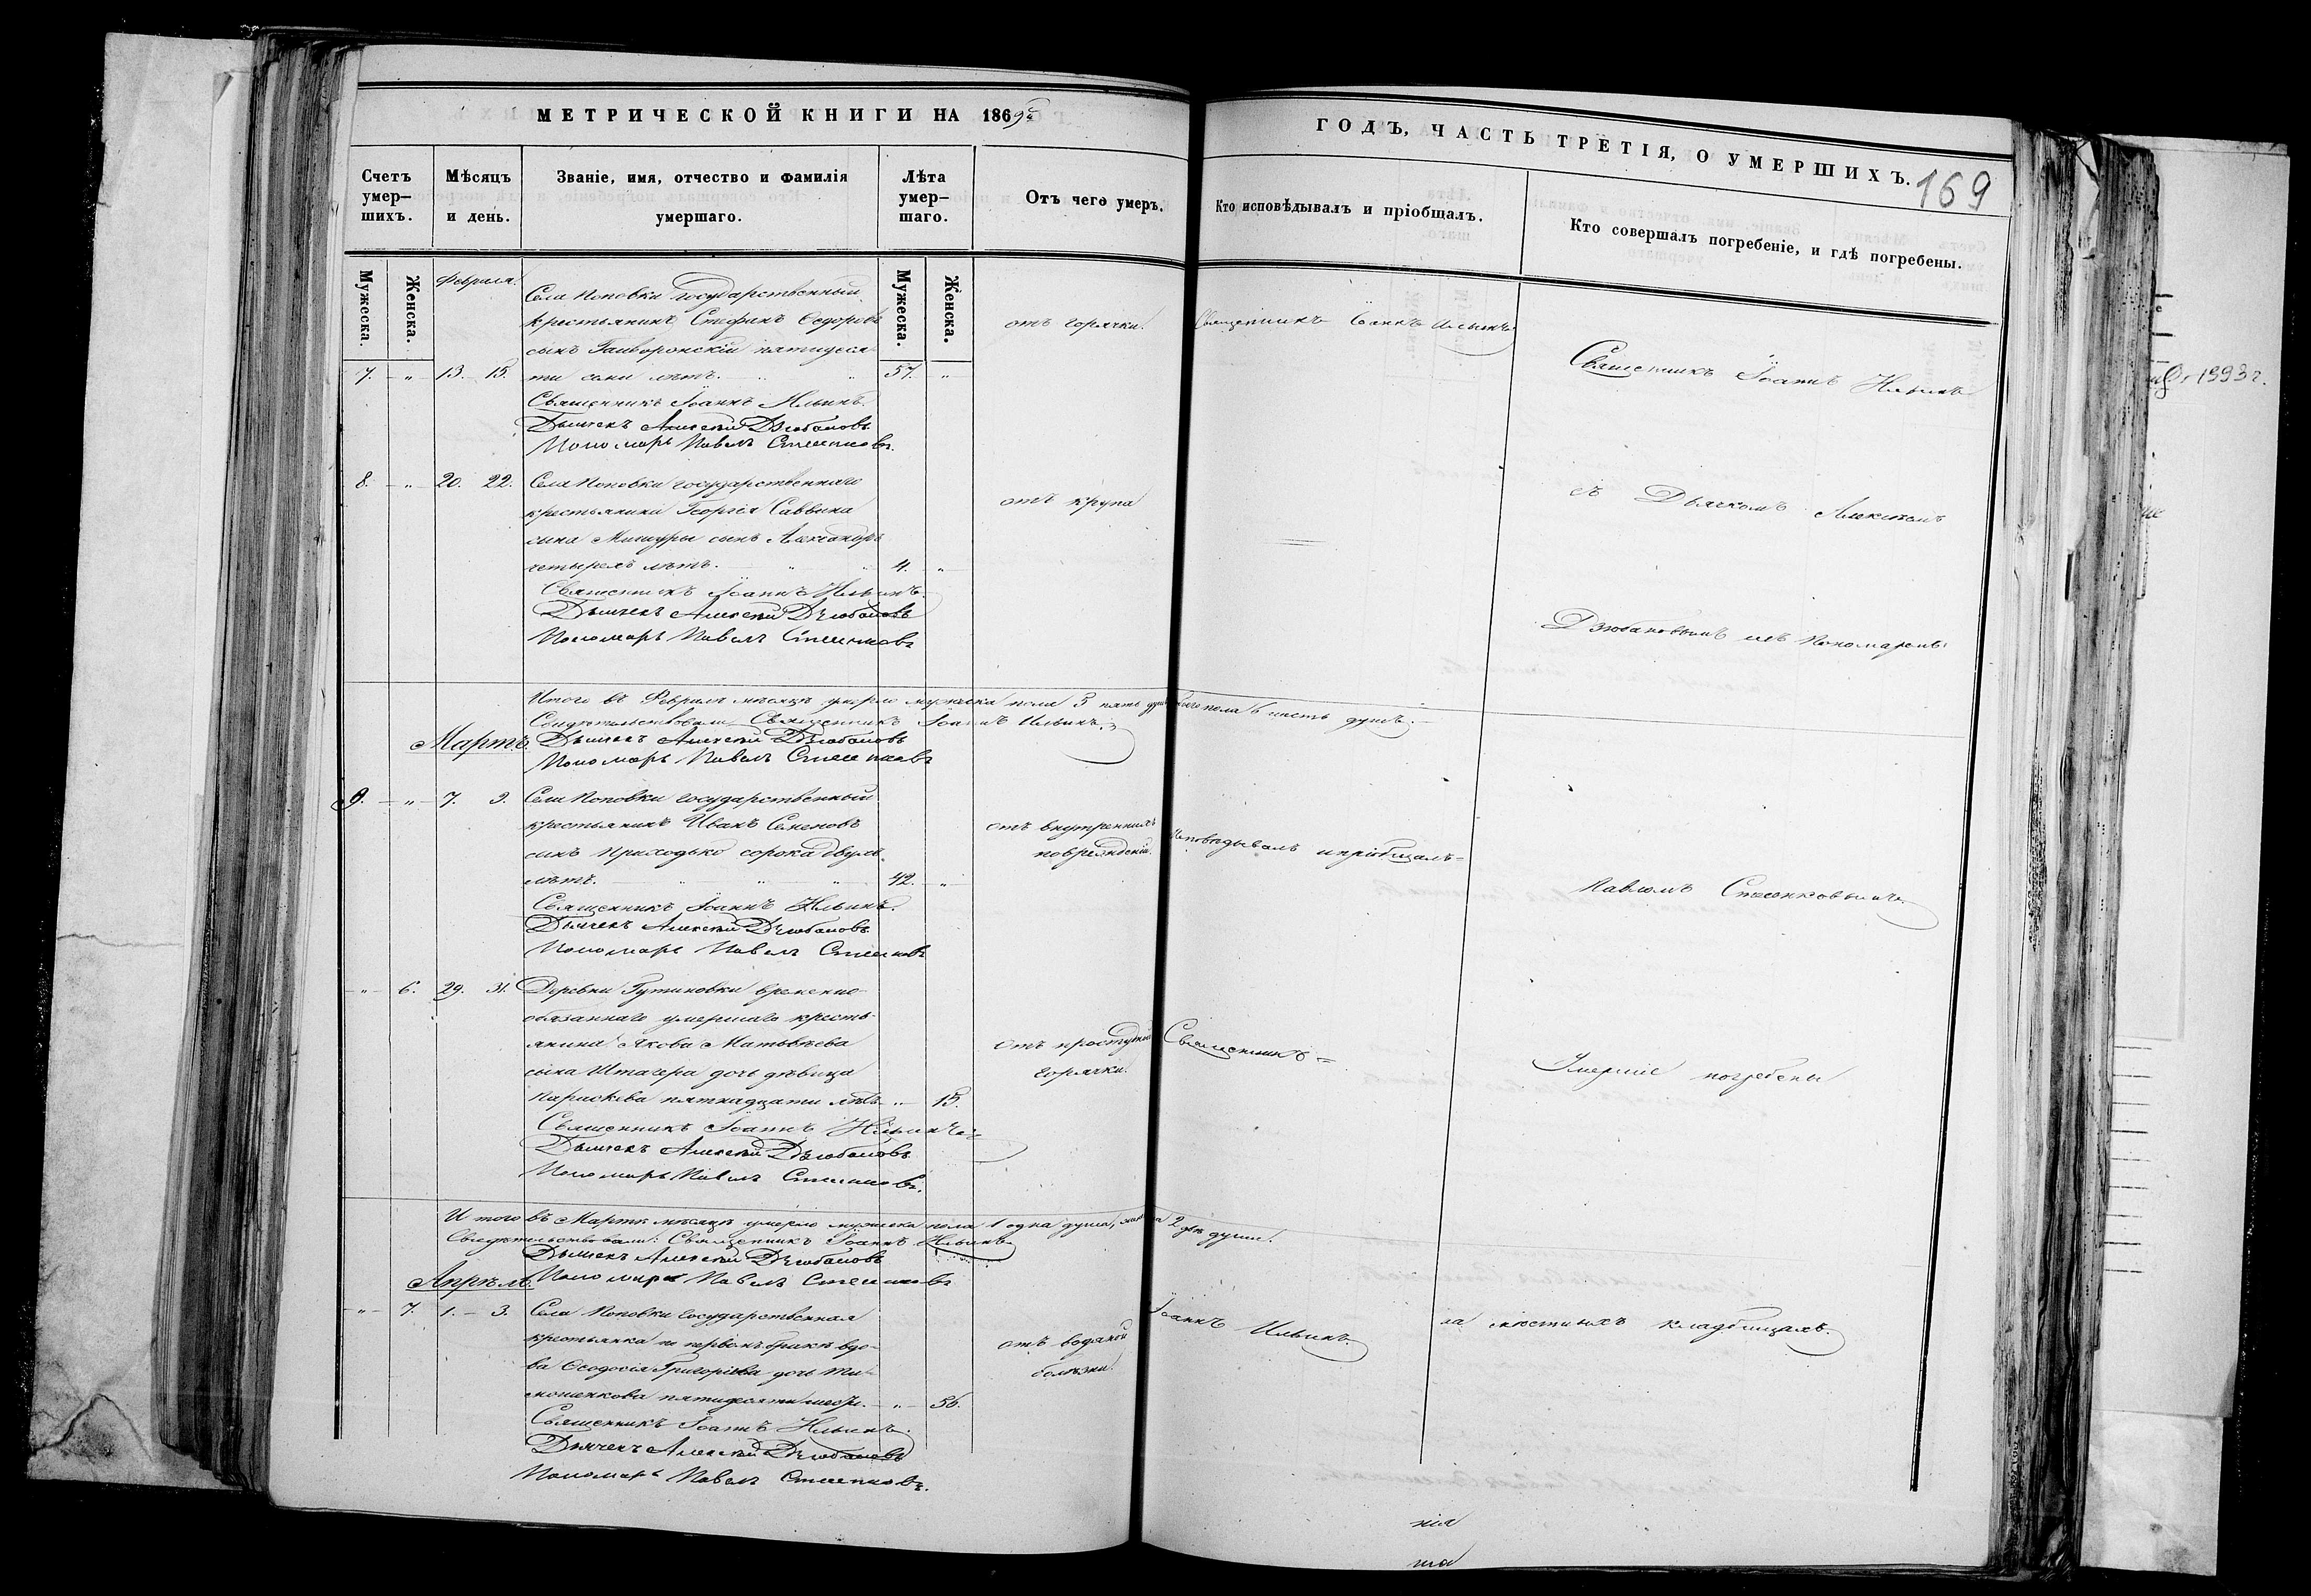 МЕТРИЧЕСКОЙ КНИГИ НА 1869й
ГОДЪ, ЧАСТЬ ТРЕТІЯ, О УМЕРШИХЪ.
169
Счетъ умер-шихъ.
Мѣсяцъ и день.
Званіе, имя, отчество и фамилія умершаго.
Лѣта умер-шаго.
Отъ чего умеръ.
Кто исповѣдывалъ и пріобщалъ.
Кто совершалъ погребеніе, и гдѣ погребены.
Мужеска.
Женска.
Мужеска.
Женска.
Февраля.
Села Поповки государственный
крестьянинъ Стефанъ Ѳедоровъ
сынъ Гайворонскій пятидеся-
7. " 13. 15. ти семи лѣтъ. " " 57. "
отъ горячки.
Священникъ Іоаннъ Ильинъ
Священникъ Іоаннъ Ильинъ.
Дьячекъ Алексей Дзюбановъ
Пономарь Павелъ
Священникъ Іоаннъ Ильинъ
8. " 20. 22. Села Поповки государственнаго
крестьянина Георгія Саввина
сына Мишуры сынъ Александръ
четырехъ лѣтъ. " " 4. "
отъ крупа
съ Дьячкомъ Алексѣемъ
Священникъ Іоаннъ Ильинъ.
Дьячекъ Алексей Дзюбановъ
Пономарь Павелъ
Дзюбановымъ и съ Пономаремъ
Итого въ Февралѣ мѣсяцѣ умерло мужеска пола 5 пять душ пола 6 шесть душъ.
Свидѣтельствовали Священникъ Іоаннъ Ильинъ
Дьячекъ Алексей Дзюбановъ
Пономарь Павелъ
Мартъ.
9. " 7. 9. Села Поповки государственный
крестьянинъ Иванъ Семеновъ
сынъ Приходько сорока двухъ
лѣтъ. " " " 42. "
отъ внутреннихъ
поврежденій.
Исповѣдывалъ и пріобщалъ
Священникъ Іоаннъ Ильинъ.
Дьячекъ Алексей Дзюбановъ
Пономарь Павелъ
Павломъ
" 6. 29. 31. Деревни Гутиновки временно-
обязаннаго умершаго кресть-
янина Якова Матвѣева
сына Штагера дочь дѣвица
Параскева пятнадцати лѣтъ " 15.
отъ простудной
горячки.
Священникъ
Священникъ Іоаннъ Ильинъ
Дьячекъ Алексей Дзюбановъ
Пономарь Павелъ
Умершіе погребены
И того въ Мартѣ мѣсяцѣ умерло мужеска пола 1 одна душа, 2 двѣ души.
Свидѣтельствовали: Священникъ Іоаннъ Ильинъ
Дьячекъ Алексей Дзюбановъ
Пономарь Павелъ
Апрѣль.
" 7. 1. 3. Села Поповки государственная
крестьянка по первомъ бракѣ вдо-
ва Ѳеодосія Григоріева дочь Ти-
мошенкова пятидесяти шести. " 56.
отъ водяной
болѣзни.
Іоаннъ Ильинъ.
на мѣстныхъ кладбищахъ.
Священникъ Іоаннъ Ильинъ.
Дьячекъ Алексей Дзюбановъ
Пономарь Павелъ